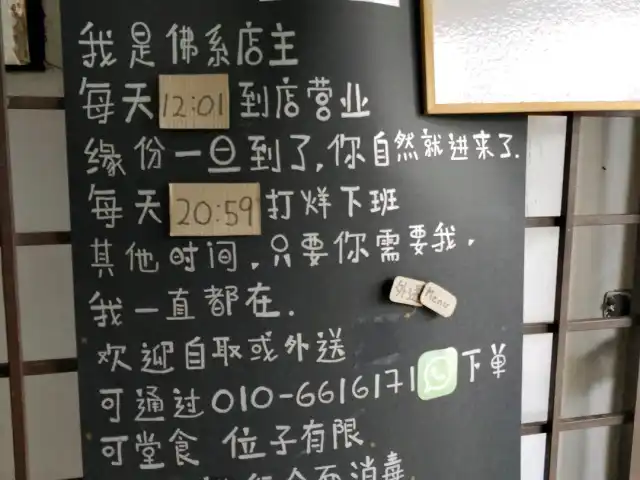 我是佛系店主
每天 12:01 到店营业
缘份一旦到了,你自然就进来了.
每天 20:59 打烊下班
其他时间,只要你需要我,
我一直都在.
Menu
欢迎自取或外送
可通过010-6616171下单
可堂食 位子有限
全面消毒